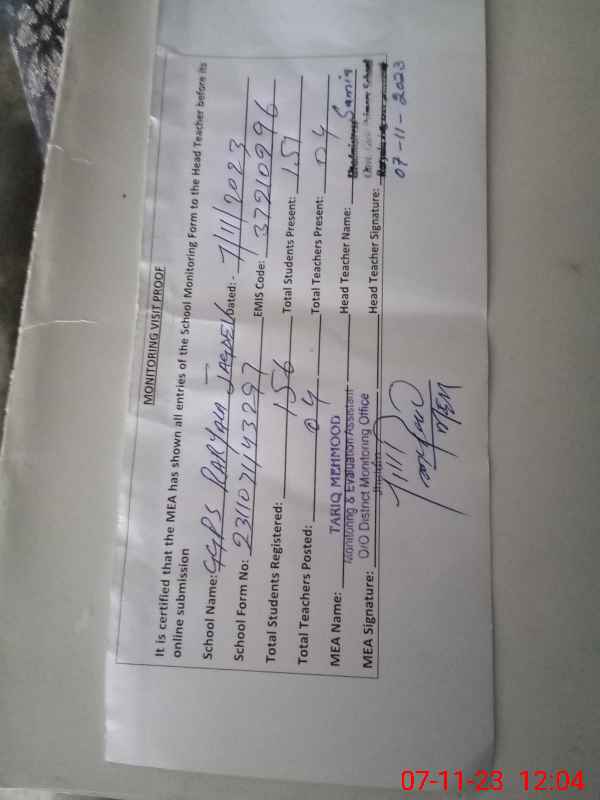 MONITORING VISIT PROOF
It is certified that the MEA has shown all entries of the School Monitoring Form to the Head Teacher before its
online submission
School Name: GGPS RARYALA Dated:- 7/11/2023
School Form No: 231107143297 EMIS Code: 37210996
Total Students Registered: 156 Total Students Present: 151
Total Teachers Posted: 04 Total Teachers Present: 04
MEA Name: TARIQ MEHMOOD Head Teacher Name: Samia
Monitoring & Evaluation Assistant
O/O District Monitoring Office
MEA Signature: Jhelum Head Teacher Signature:
07-11-2023
7/11
MEA
07-11-23 12:04